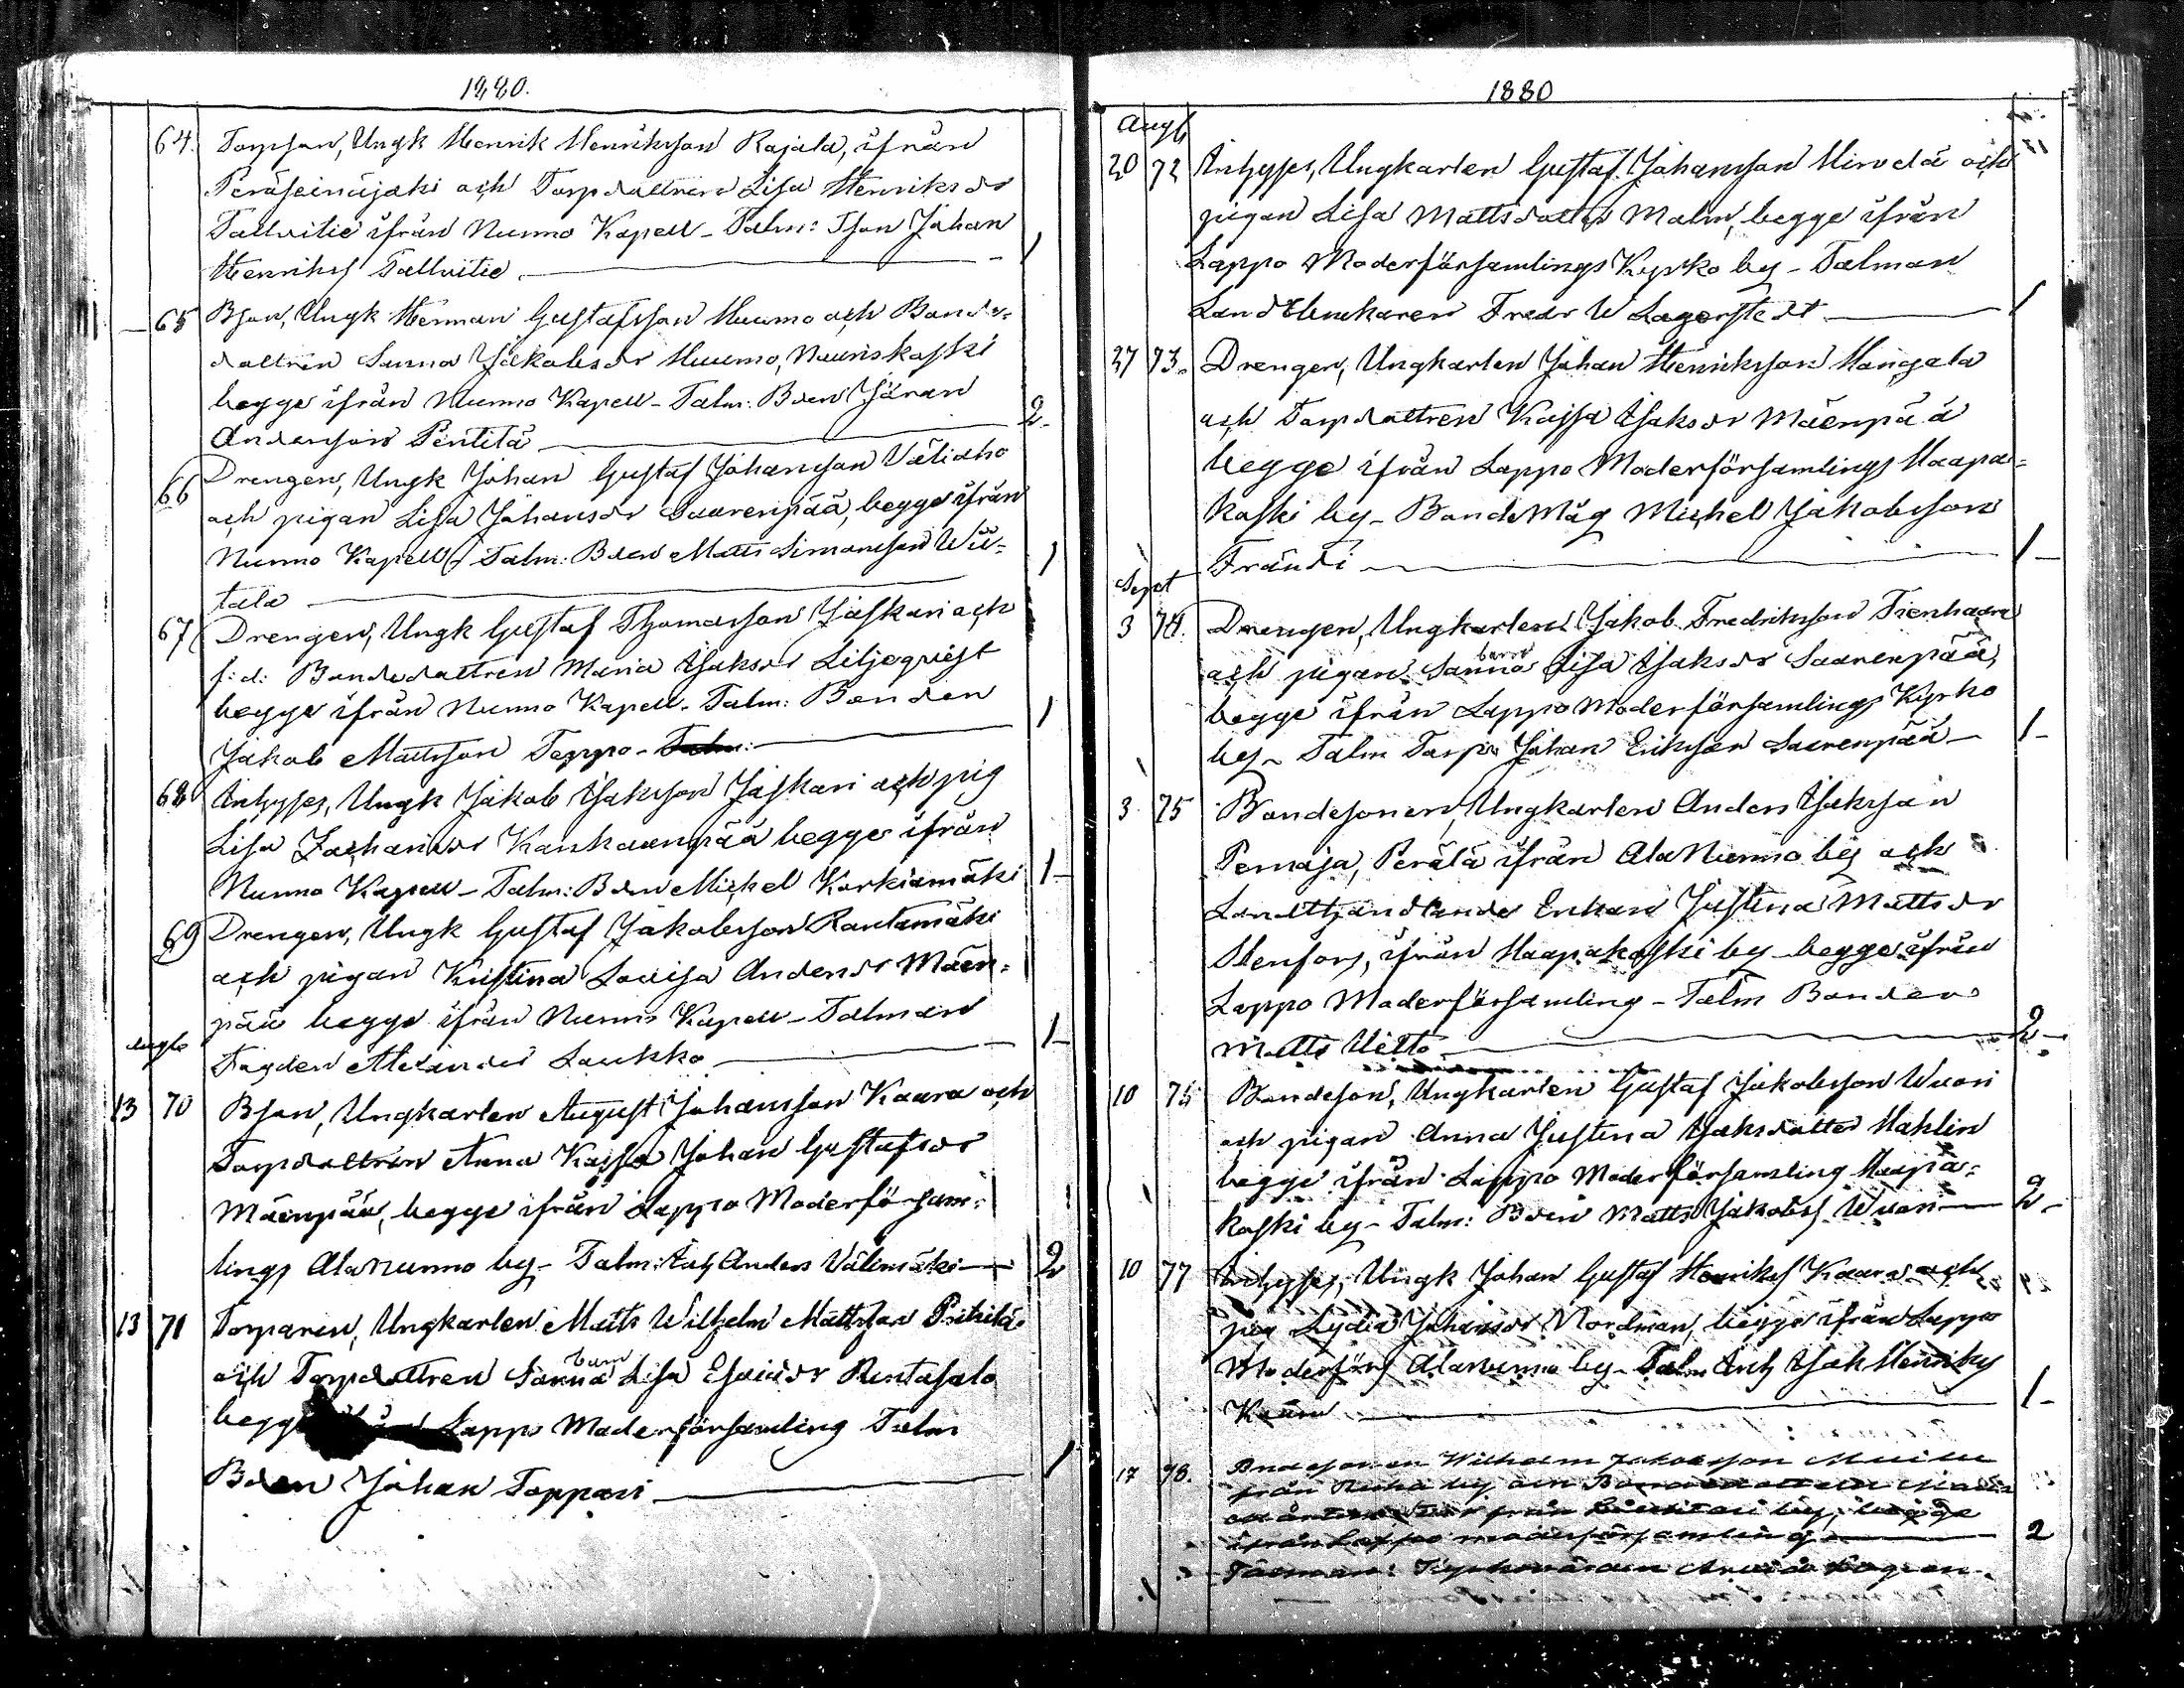 1880.
64. Torpson, Ungk Henrik Henriksson Rajala, ifrån
Peräseinäjoki och Torpdottren Lisa Henriksdr
Tallvitie ifrån Nurmo Kapell - Talm: Tson Johan
Henrikss Tallvitie 1
65 Bson, Ungk Herman Gustafsson Huumo och Bonde-
dottren Sanna Jakobsdr Huumo, Nouriskoski
begge ifrån Nurmo Kapell - Talm: Bden Jöran
Andersson Pentilä 2
66 Drengen, Ungk Johan Gustaf Johansson Väliaho
och pigan Lisa Johansdr Saarenpää, begge ifrån
Nurmo Kapell - Talm: Bden Matts Simonsson Wii-
tala 1
67 Drengen, Ungk Gustaf Thomasson Jaskari och
f:d: Bondedottren Maria Isaksdr Liljeqvist
begge ifrån Nurmo Kapell - Talm: Bonden
Jakob Mattsson Teppo - Talm: 1
68 Inhyses, Ungk Jakob Isaksson Jaskari och pig
Lisa Zachariasdr Kankaanpää begge ifrån
Nurmo Kapell - Talm: Bden Michel Karkiamäki 1
69 Drengen, Ungk Gustaf Jakobsson Rantamäki
och pigan Kristina Lovisa Andersdr Mäen-
pää begge ifrån Nurmo Kapell - Talman
Fogden Alexander Laukko 1
Augti
13 70 Bson, Ungkarlen August Johansson Kaara och
Torpdottren Anna Kajsa Johan Gustafsdr
Mäenpää, begge ifrån Lappo Moderförsam-
lings Alanurmo by - Talm: Inh Anders Välimäki 2
13 71 Torparen, Ungkarlen Matts Wilhelm Mattsson
barn
och Torpdottren Sanna Lisa Esaiasdr Rintasalo
begge Lappo Moderförsamling Talm
Bden Johan Toppari 1
1880
Augti
20 72 Inhyses, Ungkarlen Gustaf Johansson och
pigan Lisa Mattsdotter Malm, begge ifrån
Lappo Moderförsamlings Kyrko by - Talman
Fredr W Lagerstedt 1
27 73. Drengen, Ungkarlen Johan Henriksson Hangala
och Torpdottren Kajsa Isaksdr Mäenpää
begge ifrån Lappo Moderförsamlings Haapa-
koski by - Bonde Måg Michel Jakobsson
Frändi 1
Sept
3 74. Drengen, Ungkarlen Jakob Fredriksson Tienhaara
barn
och pigan Sanna Lisa Isaksdr Saarenpää,
begge ifrån Lappo Moderförsamlings Kyrko
by - Talm Torp Johan Eriksson Saarenpää 1
3 75 Bondesonen, Ungkarlen Anders Isaksson
Pernaja, Perälä ifrån Ala Nurmo by och
Enkan Justina Mattsdr
Stenfors, ifrån Haapakoski by begge ifrån
Lappo Moderförsamling - Talm Bonden
Matts Uitto 2
10 76 Bondeson, Ungkarlen Gustaf Jakobsson Wuori
och pigan Anna Justina Isaksdotter Hahlin
begge ifrån Lappo Moderförsamling Haapa-
koski by - Talm: Bden Matts Jakobss Wuori 2
10 77 Inhyses, Ungk Johan Gustaf Henrikss Kaara och
pig Lydia Johansdr Nordman, begge ifrån Lappo
Moderförs Alanurmo by - Talm Inh Isak Henrikss
Kaara 1
17 78. Bondesonen Wilhelm Jakobsson
från Ruha by och Bondedottren Maria
från by, begge
ifrån Lappo moderförsamling 2
Talman: Kyrkovärden